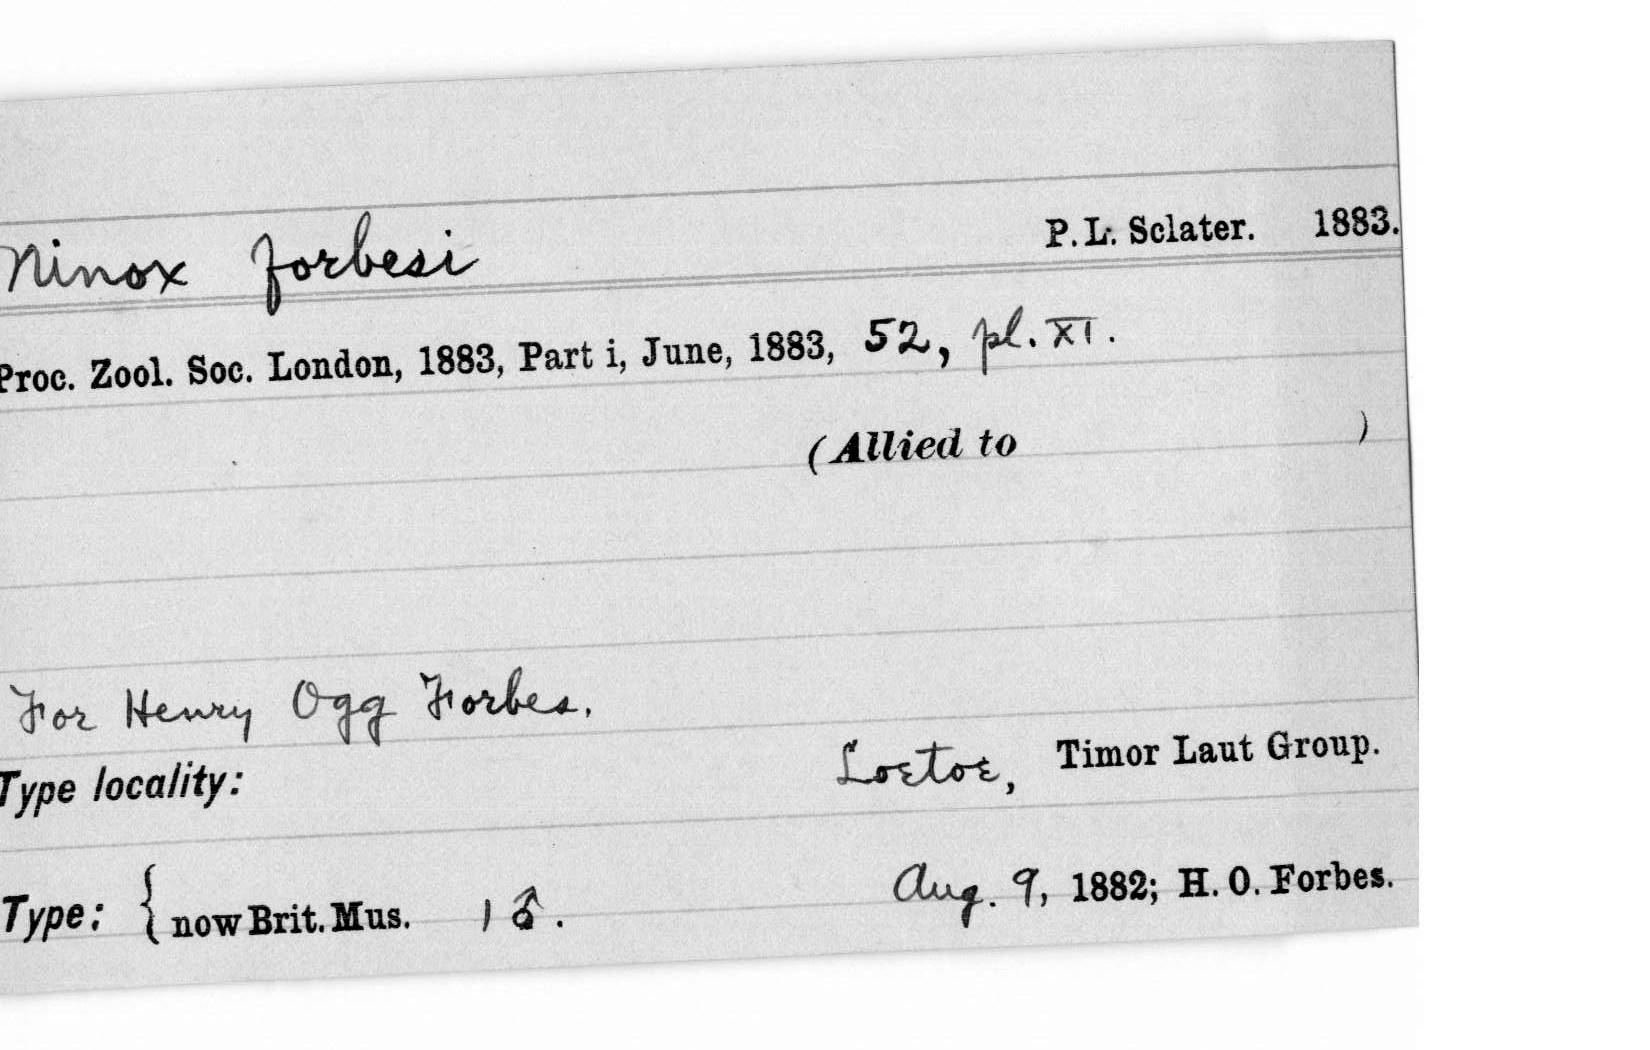 Ninox forbesi P. L. Sclater. 1883.
Proc. Zool. Soc. London, 1883, Part i, June, 1883, 52, pl. XI.
(Allied to )
For Henry Ogg Forbes.
Type locality: Loetoe, Timor Laut Group.
Type: { now Brit. Mus. 1 ♂. Aug. 9, 1882; H. O. Forbes.